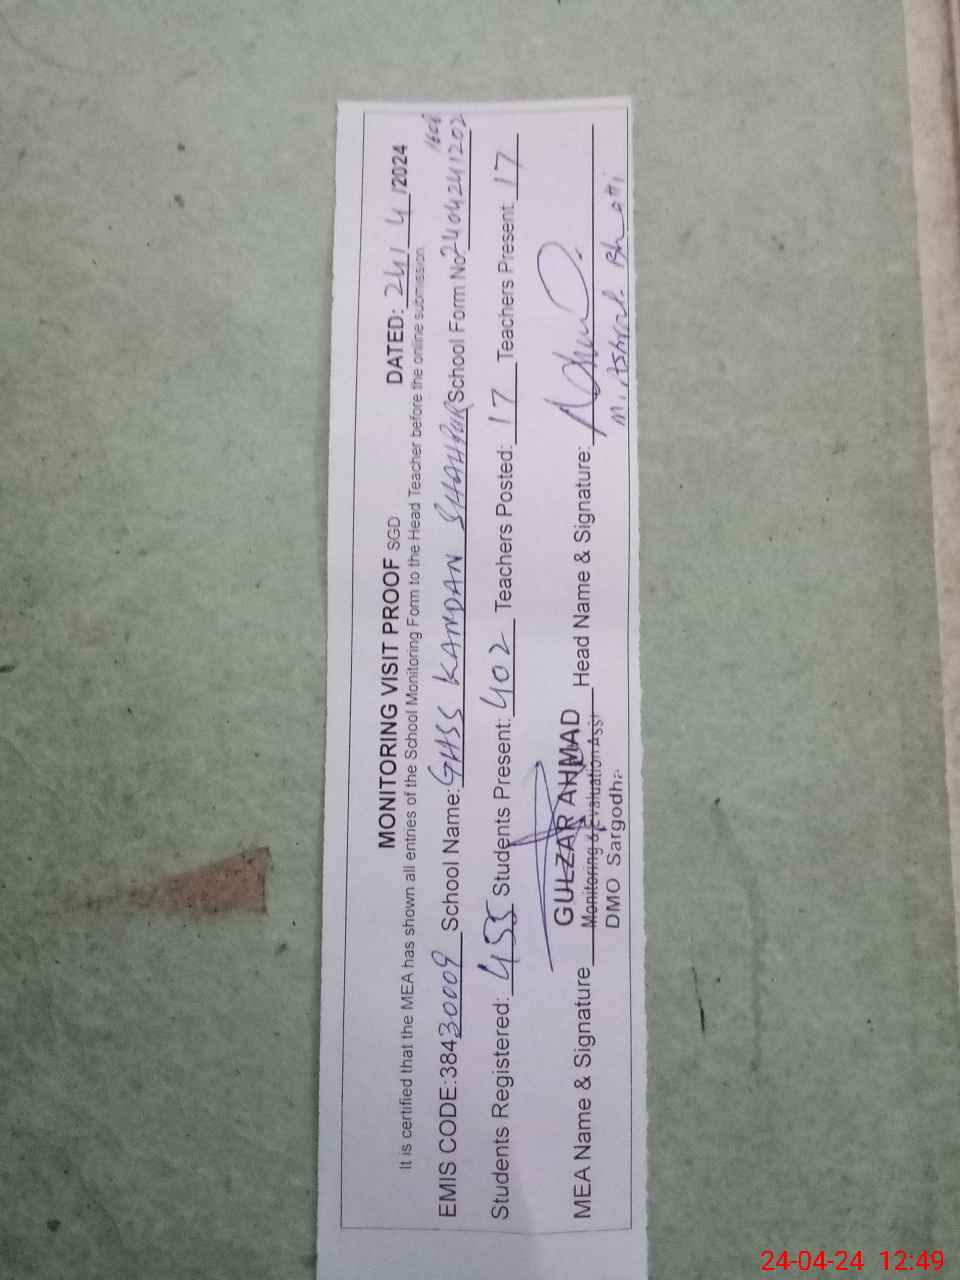 MONITORING VISIT PROOF SGD DATED: 24/ 4 /2024
It is certified that the MEA has shown all entries of the School Monitoring Form to the Head Teacher before the online submission.
EMIS CODE:38430009 School Name: GHSS KANDAN SHAHPUR School Form No 24042412021608
Students Registered: 455 Students Present: 402 Teachers Posted: 17 Teachers Present: 17
MEA Name & Signature GULZAR AHMAD Head Name & Signature:
Monitoring & Evaluation Asstt M. Ashraf Bhatti
DMO Sargodha
24-04-24 12:49